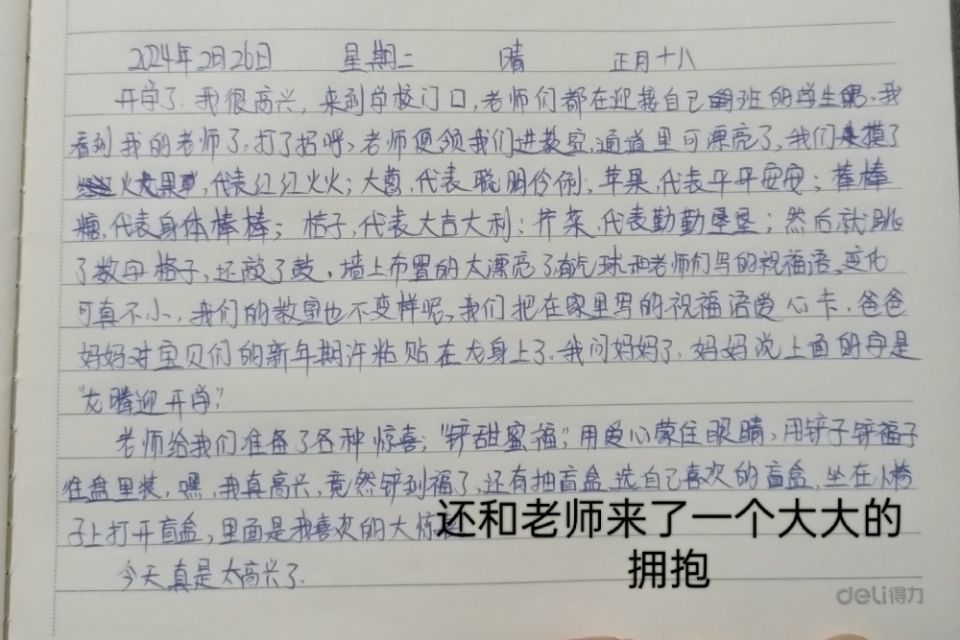 2024年2月26日 星期二 晴 正月十八
开学了.我很高兴,来到学校门口,老师们都在迎接自己班的学生呢.我
看到我的老师了.打了招呼,老师便领我们进教室,通道里可漂亮了,我们摸了
火龙果,代表红红火火;大葱,代表聪明伶俐,苹果,代表平平安安;棒棒
糖,代表身体棒棒;桔子,代表大吉大利;芹菜,代表勤勤垦垦;然后就跳
了数字格子,还敲了鼓,墙上布置的太漂亮了有气球和老师们写的祝福语,变化
可真不小,我们的教室也不变样呢,我们把在家里写的祝福语爱心卡,爸爸
妈妈对宝贝们的新年期许粘贴在龙身上了.我问妈妈了.妈妈说上面的字是
"龙腾迎开学,"
老师给我们准备了各种惊喜;"铲甜蜜福",用爱心蒙住眼睛,用铲子铲福子
往盘里装,嘿,我真高兴,竟然铲到福了,还有抽盲盒,选自己喜欢的盲盒,坐在小椅
子上打开盲盒,里面是我喜欢的大惊
还和老师来了一个大大的
拥抱
今天真是太高兴了.
deli得力